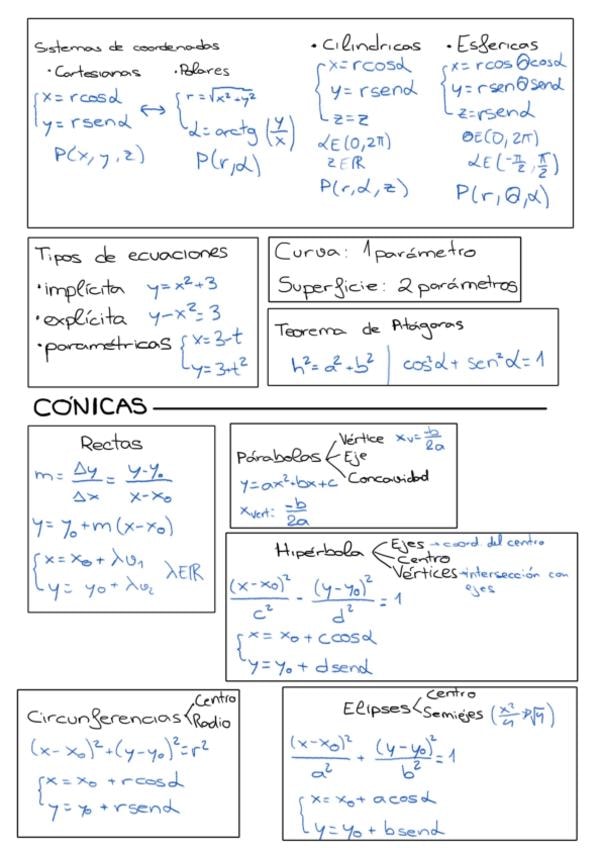 Sistemas de coordenadas
· Cartesianas
x = rcosα
y = rsenα
P(x, y, z)
· Polares
r = √x²+y²
α = arctg (y/x)
P(r, α)
· Cilíndricas
x = rcosα
y = rsenα
z = z
α∈(0, 2π)
z∈ℝ
P(r, α, z)
· Esféricas
x = rcosθcosα
y = rsenθsenα
z = rsenα
θ∈(0, 2π)
α∈(-π/2, π/2)
P(r, θ, α)
Tipos de ecuaciones
· implícita y = x² + 3
· explícita y - x² = 3
· paramétricas x = 3 - t
y = 3 + t²
Curva: 1 parámetro
Superficie: 2 parámetros
Teorema de Pitágoras
h² = a² + b² | cos²α + sen²α = 1
CÓNICAS
Rectas
m = Δy/Δx = y-y₀/x-x₀
y = y₀ + m(x-x₀)
x = x₀ + λv₁
y = y₀ + λv₂
λ∈ℝ
Párabolas
Vértice xv = -b/2a
Eje
Concavidad
y = ax² + bx + c
xvert: -b/2a
Hipérbola
Ejes → coord. del centro
Centro
Vértices → intersección con ejes
(x-x₀)²/c² - (y-y₀)²/d² = 1
x = x₀ + ccosα
y = y₀ + dsenα
Circunferencias
Centro
Radio
(x-x₀)² + (y-y₀)² = r²
x = x₀ + rcosα
y = y₀ + rsenα
Elipses
Centro
Semiejes
(x-x₀)²/a² + (y-y₀)²/b² = 1
x = x₀ + acosα
y = y₀ + bsenα